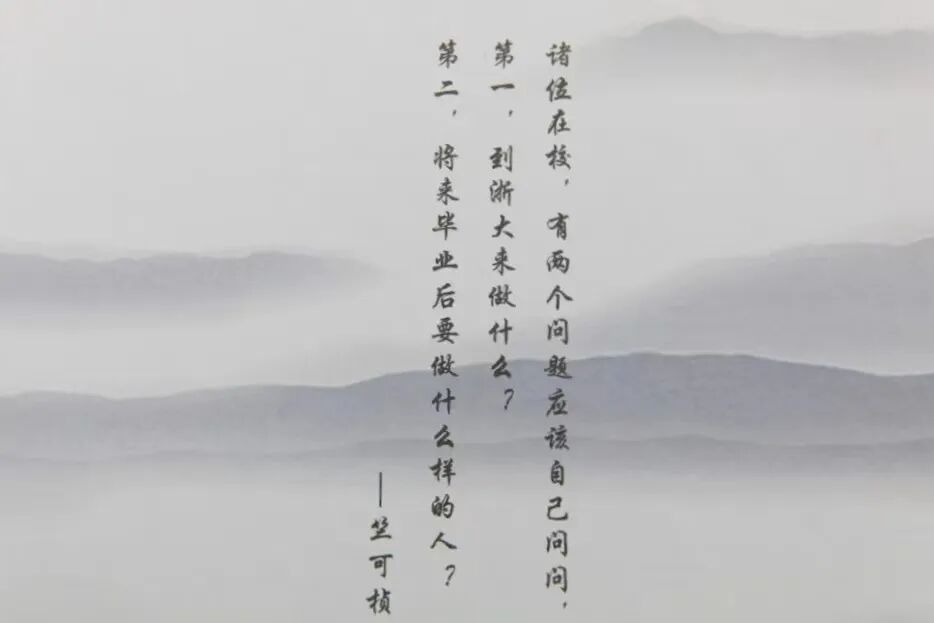 诸位在校，有两个问题应该自己问问，
第一，到浙大来做什么？
第二，将来毕业后要做什么样的人？
—竺可桢